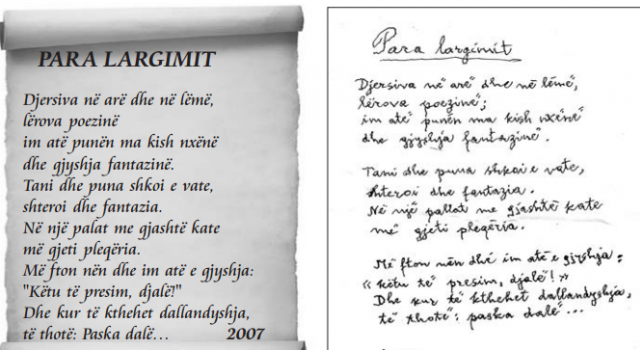 PARA LARGIMIT
Djersiva në arë dhe në lëmë,
lërova poezinë
im atë punën ma kish nxënë
dhe gjyshja fantazinë.
Tani dhe puna shkoi e vate,
shteroi dhe fantazia.
Në një palat me gjashtë kate
më gjeti pleqëria.
Më fton nën dhe im atë e gjyshja:
"Këtu të presim, djalë!"
Dhe kur të kthehet dallandyshja,
të thotë: Paska dalë...
2007
Para largimit
Djersiva në arë dhe në lëmë,
lërova poezinë;
im atë punën ma kish nxënë
dhe gjyshja fantazinë.
Tani dhe puna shkoi e vate,
shteroi dhe fantazia.
Në një pallat me gjashtë kate
më gjeti pleqëria.
Më fton nën dhé im atë e gjyshja:
«këtu të presim, djalë!»
Dhe kur të kthehet dallandyshja,
të thotë: paska dalë...